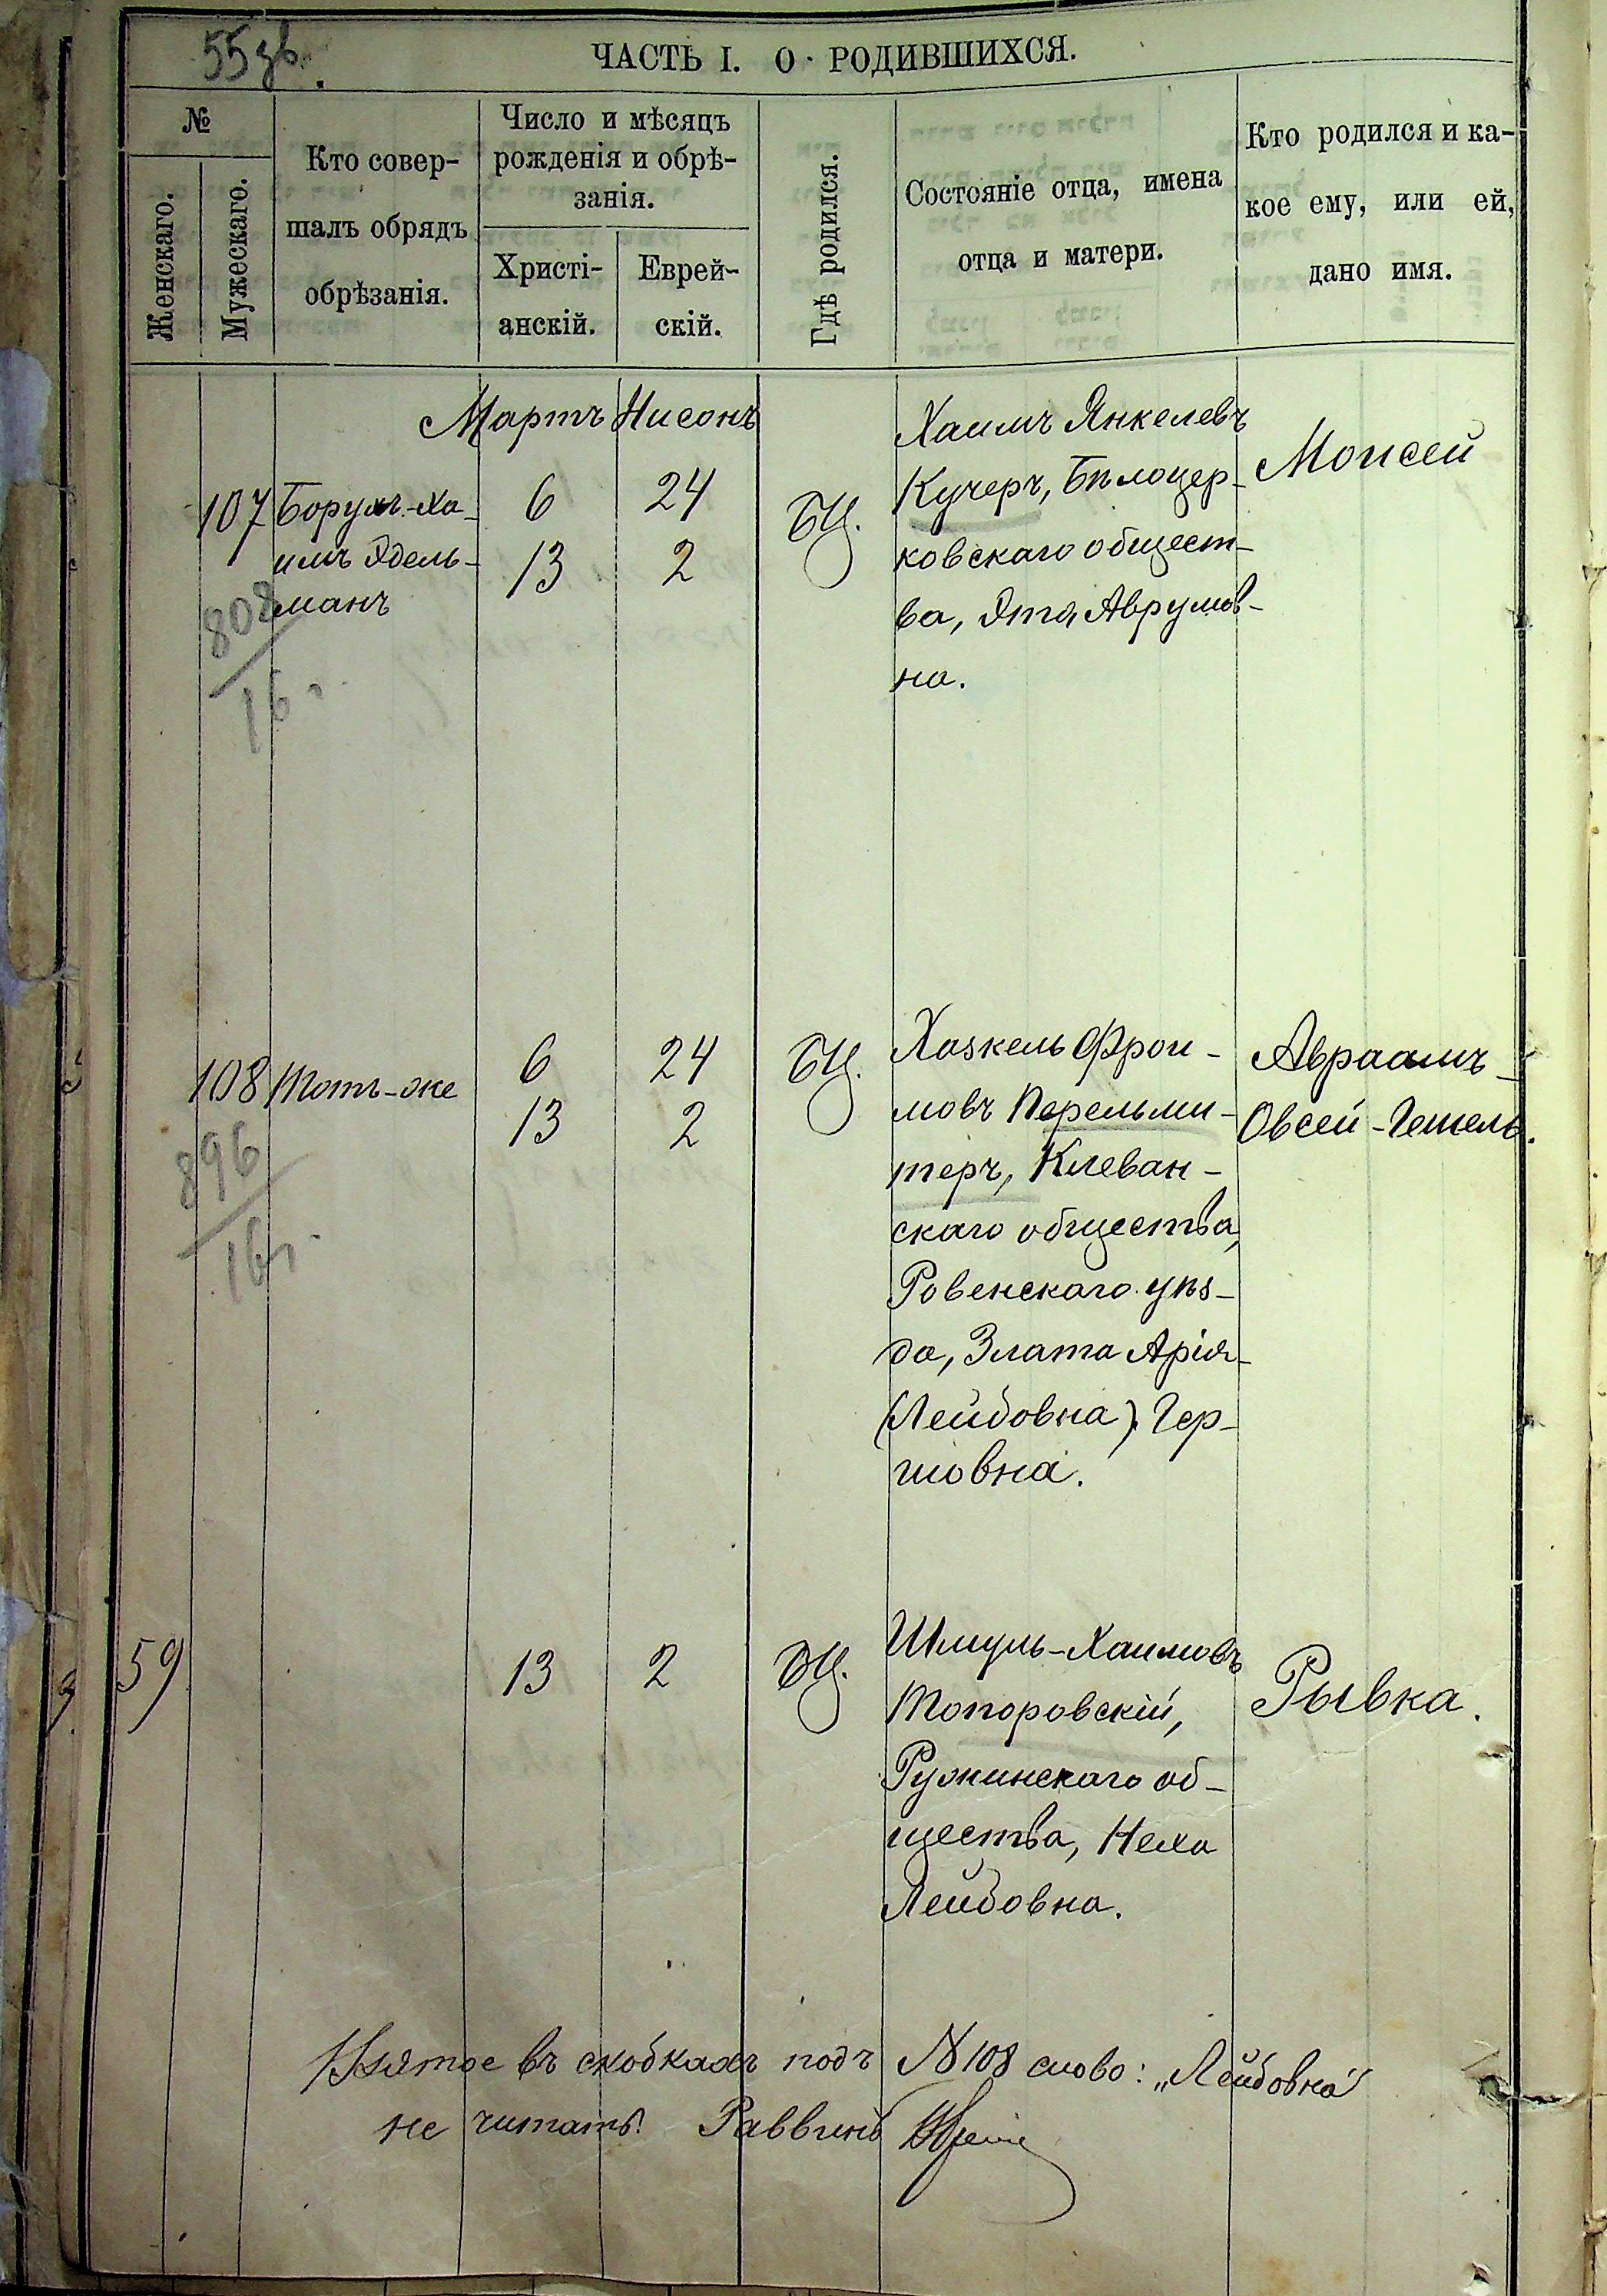 55 зв.
ЧАСТЬ I. О РОДИВШИХСЯ.
№
Женскаго.
Мужескаго.
Кто совер-
шалъ обрядъ
обрѣзанія.
Число и мѣсяцъ
рожденія и обрѣ-
занія.
Христі-
анскій.
Еврей-
скій.
Гдѣ родился.
Состояніе отца, имена
отца и матери.
Кто родился и ка-
кое ему, или ей,
дано имя.
Мартъ Нисонъ
107 Борухъ-Ха-
имъ Эдель-
манъ
808
16 г.
6 24
13 2
БЦ.
Хаимъ Янкелевъ
Кучеръ, Бѣлоцер-
ковскаго общест-
ва, Эта Аврумов-
на.
Моисей
108 Тотъ-же
896
16 г.
6 24
13 2
БЦ.
Хазкель Фрои-
мовъ Перельми-
теръ, Клеван-
скаго общества,
Ровенскаго уѣз-
да, Злата Арія-
(Лейбовна) Гер-
шовна.
Авраамъ-
Овсей-Гешель.
59
13 2
БЦ.
Шмуль-Хаимовъ
Топоровскій,
Ружинскаго об-
щества, Неха
Лейбовна.
Рывка.
Взятое въ скобкахъ подъ №108 слово: „Лейбовна"
не читать. Раввинъ